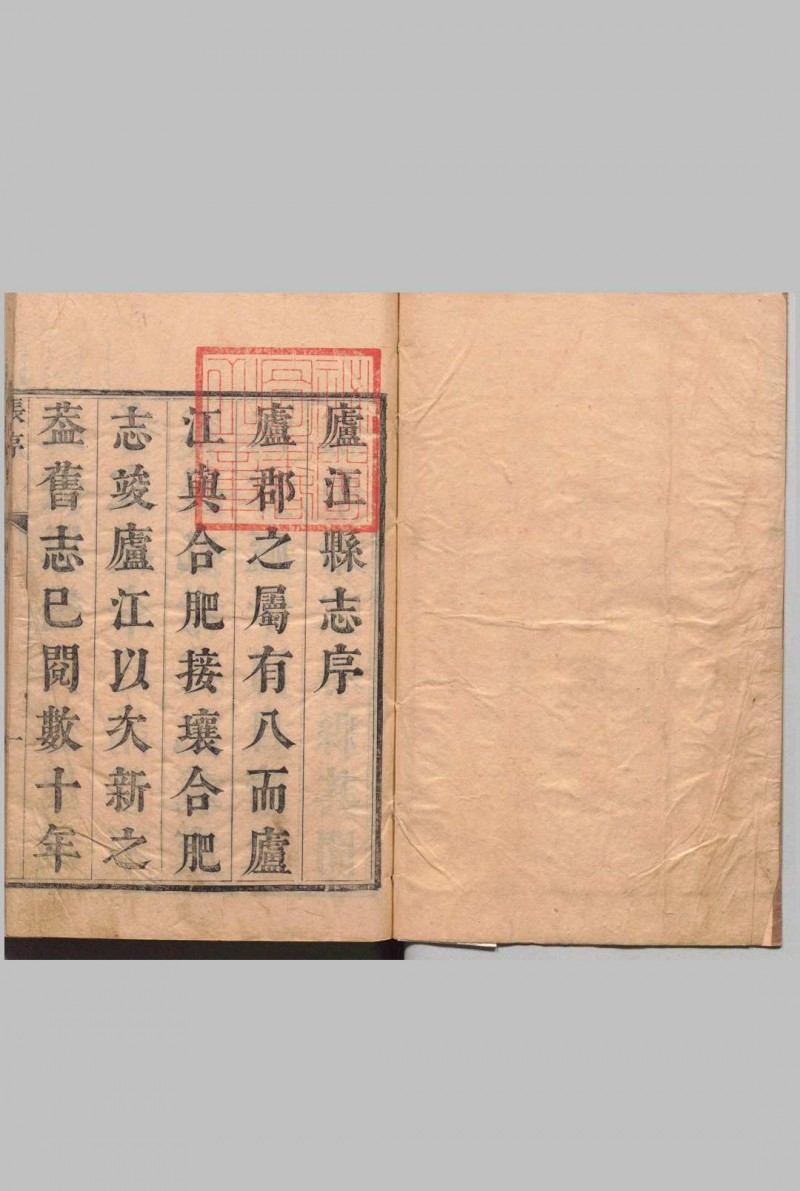 廬江縣志序
廬郡之屬有八而廬
江與合肥接壤合肥
志竣廬江以次新之
葢舊志已閱數十年
張序
一